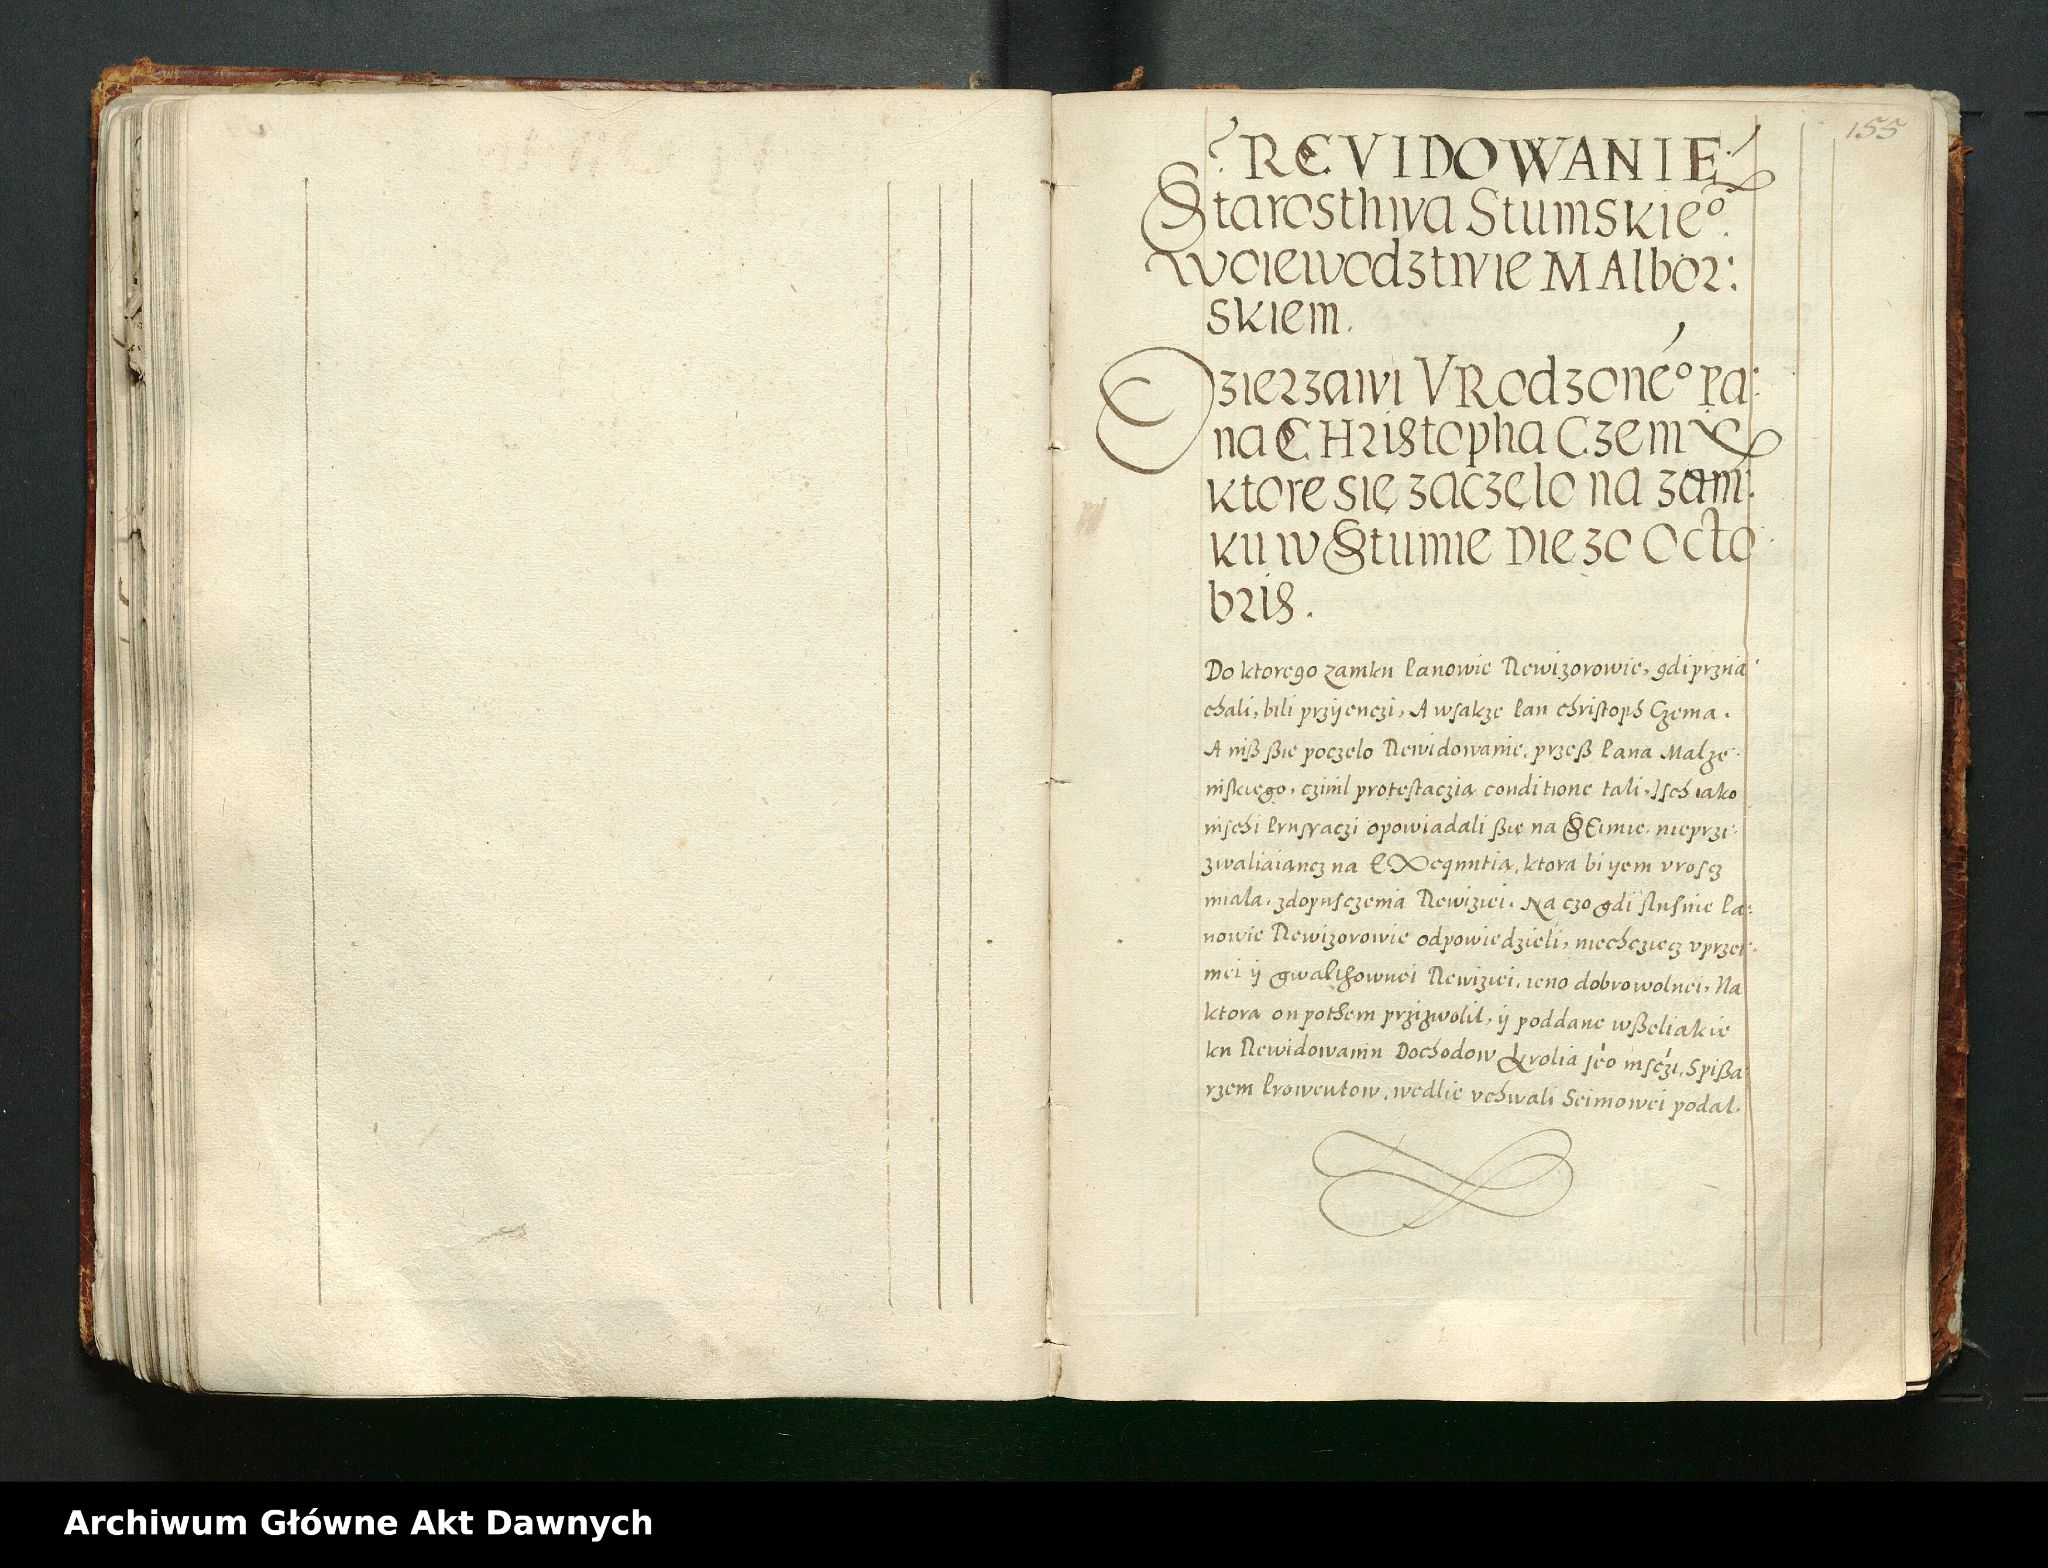 155
REVIDOWANIE
Starosthwa Stumskieº.
woiewodztwie MAlbor:
skiem.
Dzierzawi VRodzonéº Pa:
na CHristopha Czem
ktore się zaczęlo na zam:
ku w Stumie Die 30 Octo
bris.
Do ktorego zamku Panowie Rewizorowie, gdi prznia
chali, bili przijenczi, A wsakze Pan christoph Czema.
A niß ßie poczelo Rewidowanie, przeß Pana Malze:
nskiego, czinil protestaczia conditione tali, Isch iako
inschi Prusaczi opowiadali ßie na SEimie, nieprzi:
zwaliaiancz na EXequutia, ktora bi ijem vroscz
miala, zdopusczenia Rewiziei. Na czo gdi slusnie Pa:
nowie Rewizorowie odpowiedzieli, niechcziecz vprzei:
mei ij gwalthownei Rewiziei, ieno dobrowolnei, Na
ktora on pothem przizwolil, ij poddane wßeliakie
ku Rewidowaniu Dochodow Krolia jéo msczi, Spißa
rzem Prowentow, wedlie vchwali Seimowei podal.
Archiwum Główne Akt Dawnych